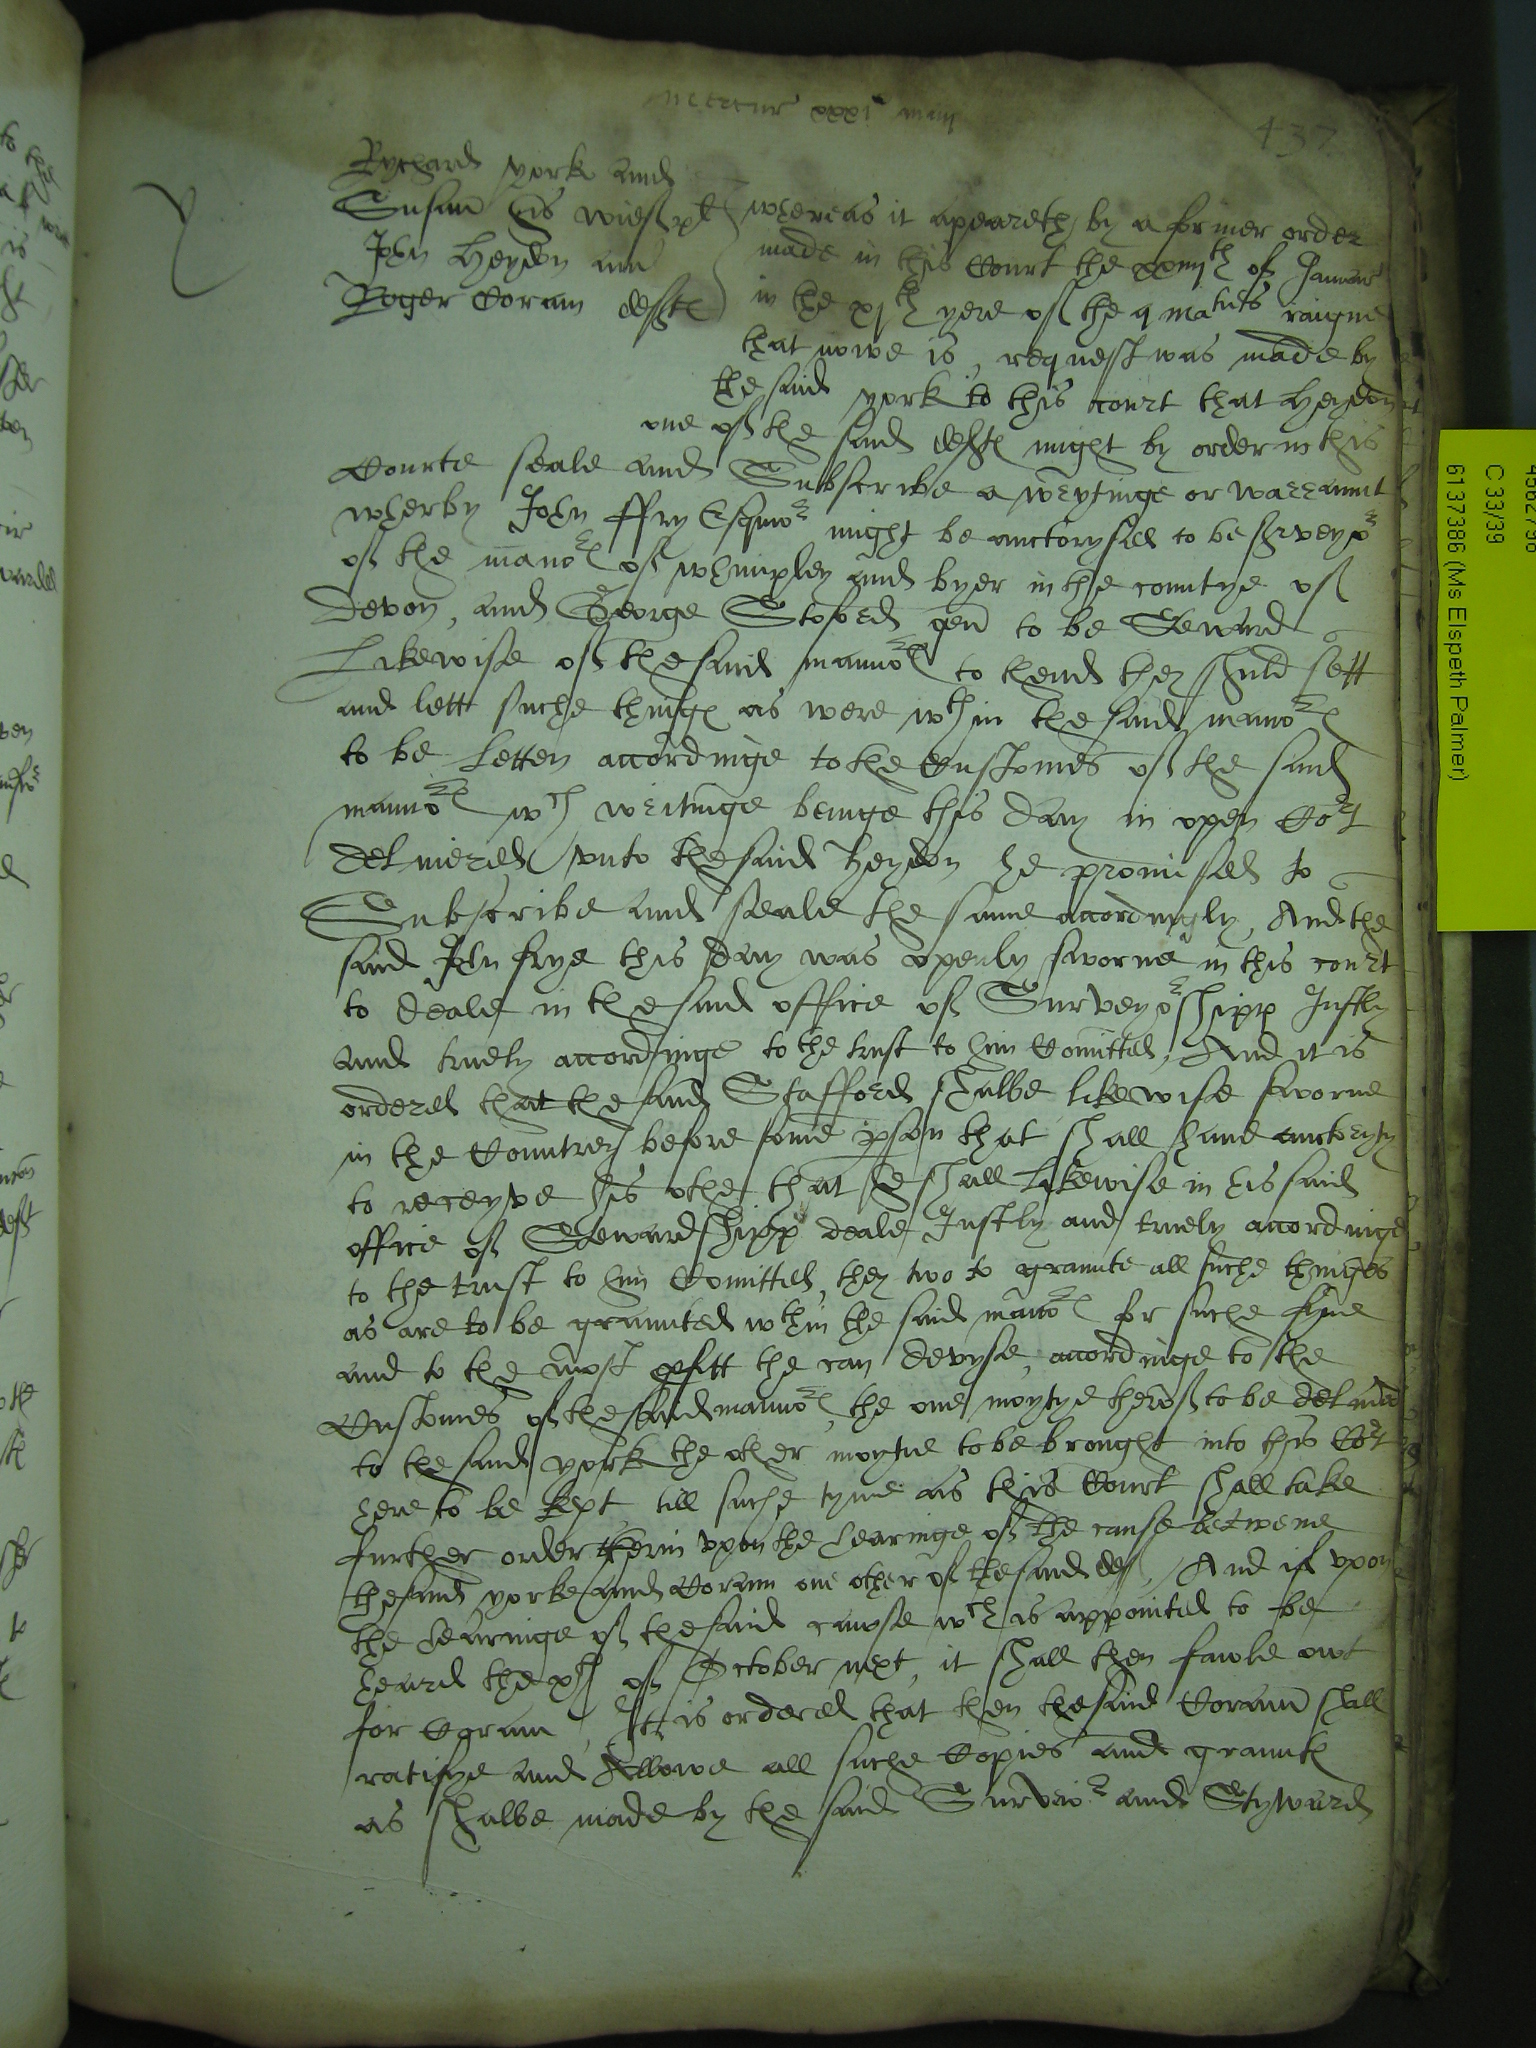 Mercur xxxi maij
437
Y
Rychard york and
Susan his wief plt
John Heydon and
Roger Coram defft
whereas it apeareth by a former order
made in this Court the xxiiijth of Januar
in the xjth yere of the q matuts raigne
that nowe is, request was made by
the said york to this court that Heydon
one of the said defft might by order in this
Courte seale and Subscribe a wrytinge or warraunt
wherby John ffry Esquior might be auctorysed to be surveyor
of the manor of whimpley and byer in the countye of
Devon, and George Stoford gen to be Steward
Likewise of the said mannor to thend they shuld sett
and lett suche thinge as were wthin the said mannor
to be Letten accordinge to the Customes of the said
mannor wch writinge beinge this day in open Cort
deliuered vnto the said Heydon he promised to
Subscribe and seale the same accordingly, And the
said John frye this day was openly sworne in this court
to deale in the said office of Surveyorshipp Justly
and truely accordinge to the trust to him Comitted, And it is
ordered that the said Stafford shalbe likewise sworne
in the Countrey before some pson that shall haue auctoryty
to receyve his othe that he shall Likewise in his said
office of Stewardshipp deale Justly and truely accordinge
to the trust to him Comitted, they two to graunte all suche thinges
as are to be graunted wthin the said manor for suche fyne
and to the most pfitt the can devyse, accordinge to the
Customes of the said mannor, the one moytye therof to be deliud
to the said york the other moytie to be brought into this Cort
here to be kept till suche tyme as this Court shall take
further order therin vpon the hearinge of the cause betwene
the said yorke and Coram one other of the said def, And if vpon
the hearinge of the said cawse wch is appointed to be
heard the xth of October next, it shall then fawle owt
for Coram, It is ordered that then the said Coram shall
ratifye and Allowe all suche Copies and graunts
as shalbe made by the said Surveior and Styward
45862796
C 33/39
6137386 (Ms Elspeth Palmer)